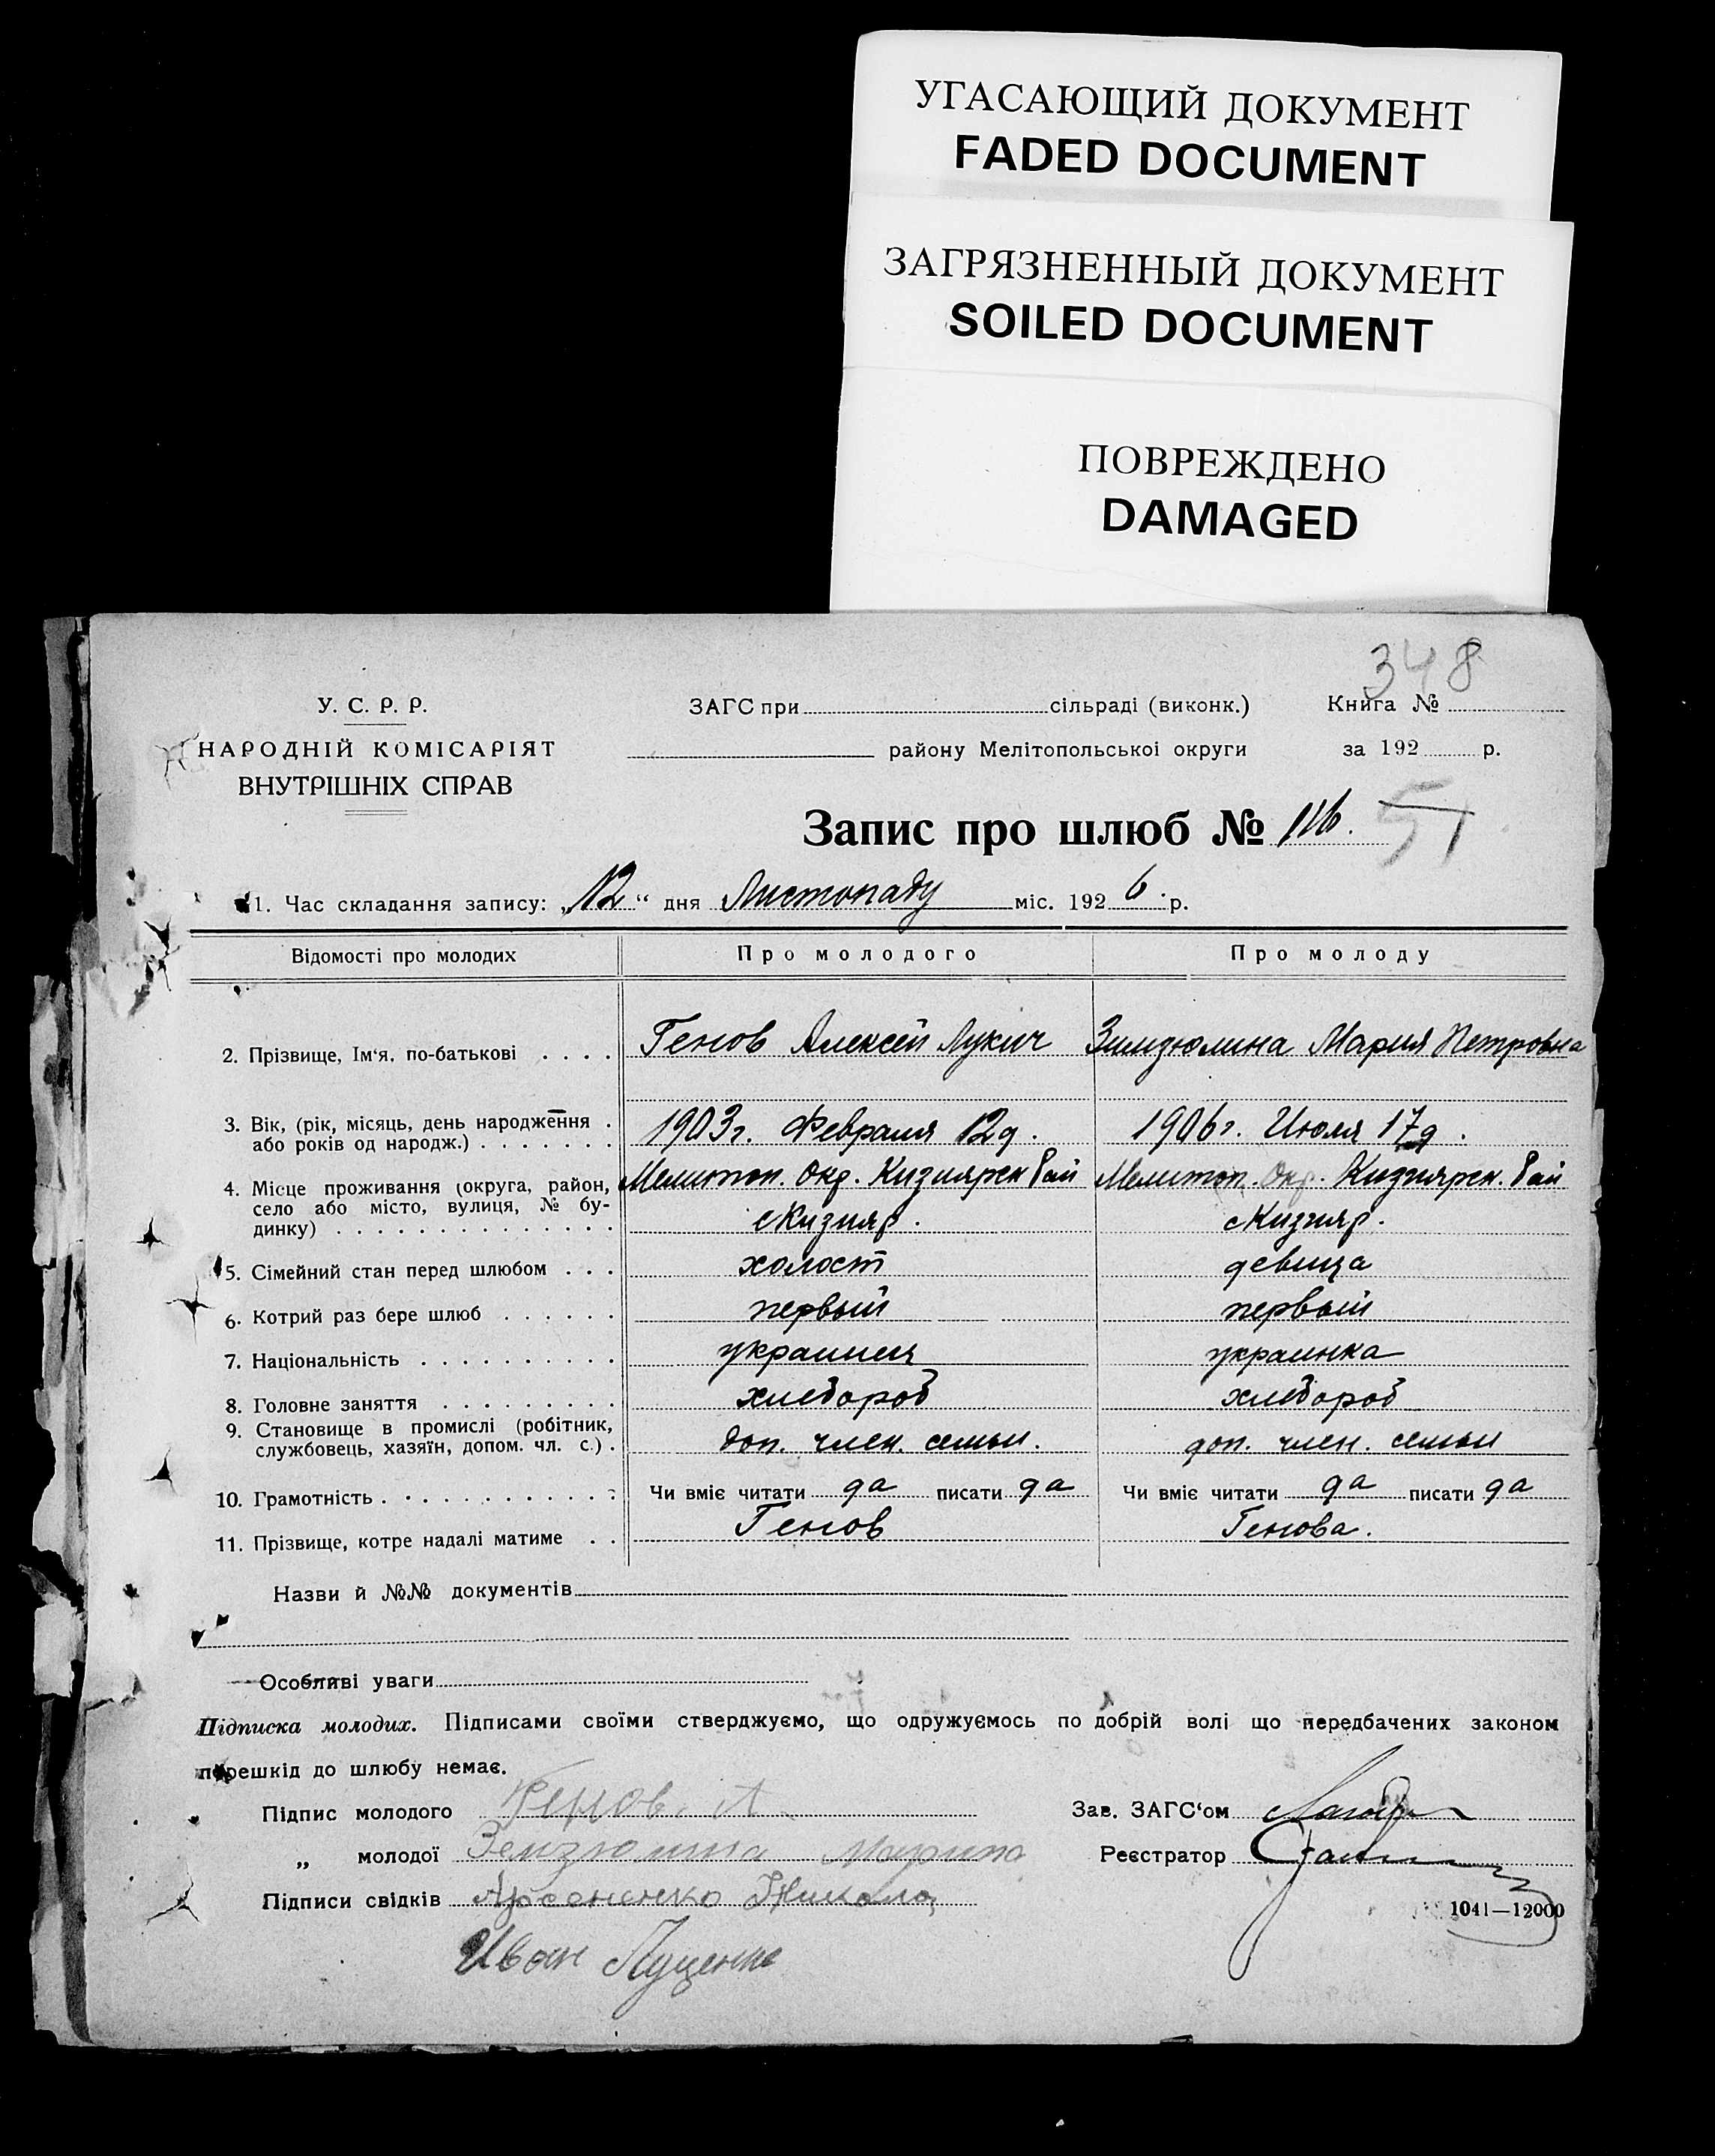 УГАСАЮЩИЙ ДОКУМЕНТ
FADED DOCUMENT
ЗАГРЯЗНЕННЫЙ ДОКУМЕНТ
SOILED DOCUMENT
ПОВРЕЖДЕНО
DAMAGED
348
У. С. Р. Р.
НАРОДНІЙ КОМІСАРІЯТ
ВНУТРІШНІХ СПРАВ
ЗАГС при сільраді (виконк.) Книга №
району Мелітопольськоі округи за 192 р.
Запис про шлюб № 116. 51
1. Час складання запису: „12“ дня Листопаду міс. 1926 р.
Відомості про молодих Про молодого Про молоду
2. Прізвище, Ім‘я, по-батькові . . . . Генов Алексей Лукич Зимзюлина Мария Петровна
3. Вік, (рік, місяць, день народження . 1903 г. Февраля 12 д. 1906 г. Июля 17 д.
або років од народж.) . . . . . . .
4. Місце проживання (округа, район, Мелитоп. Окр. Кизиярск Рай Мелитоп. Окр. Кизиярск. Рай
село або місто, вулиця, № бу- с Кизияр. с Кизияр.
динку) . . . . . . . . . . . . . .
5. Сімейний стан перед шлюбом . . . холост девица
6. Котрий раз бере шлюб . . . . . . первый первый
7. Національність . . . . . . . . . . украинец украинка
8. Головне заняття . . . . . . . . . хлебороб хлебороб
9. Становище в промислі (робітник,
службовець, хазяїн, допом. чл. с.) . доп. член. семьи. доп. член. семьи
10. Грамотність . . . . . . . . . . . . Чи вміє читати да писати да Чи вміє читати да писати да
11. Прізвище, котре надалі матиме . . Генов Генова.
Назви й №№ документів
Особливі уваги
Підписка молодих. Підписами своїми стверджуємо, що одружуємось по добрій волі що передбачених законом
перешкід до шлюбу немає.
Підпис молодого Генов. А Зав. ЗАГС‘ом
„ молодої Земзюлина Мария Реєстратор
Підписи свідків Арсененко Николо
1041—12000
Иван Луценко